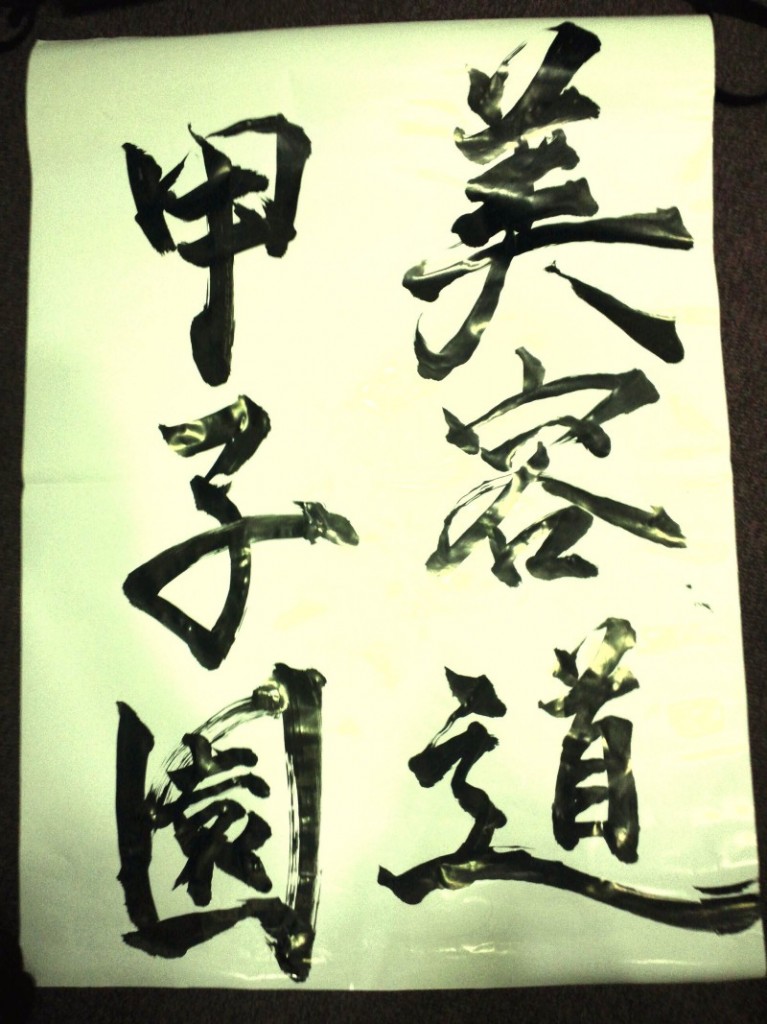 美容道
甲子園